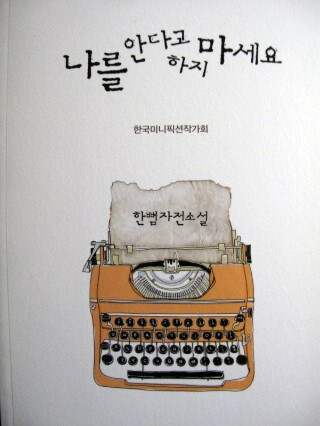 나를 안다고 하지 마세요
한국미니픽션작가회
한뼘자전소설